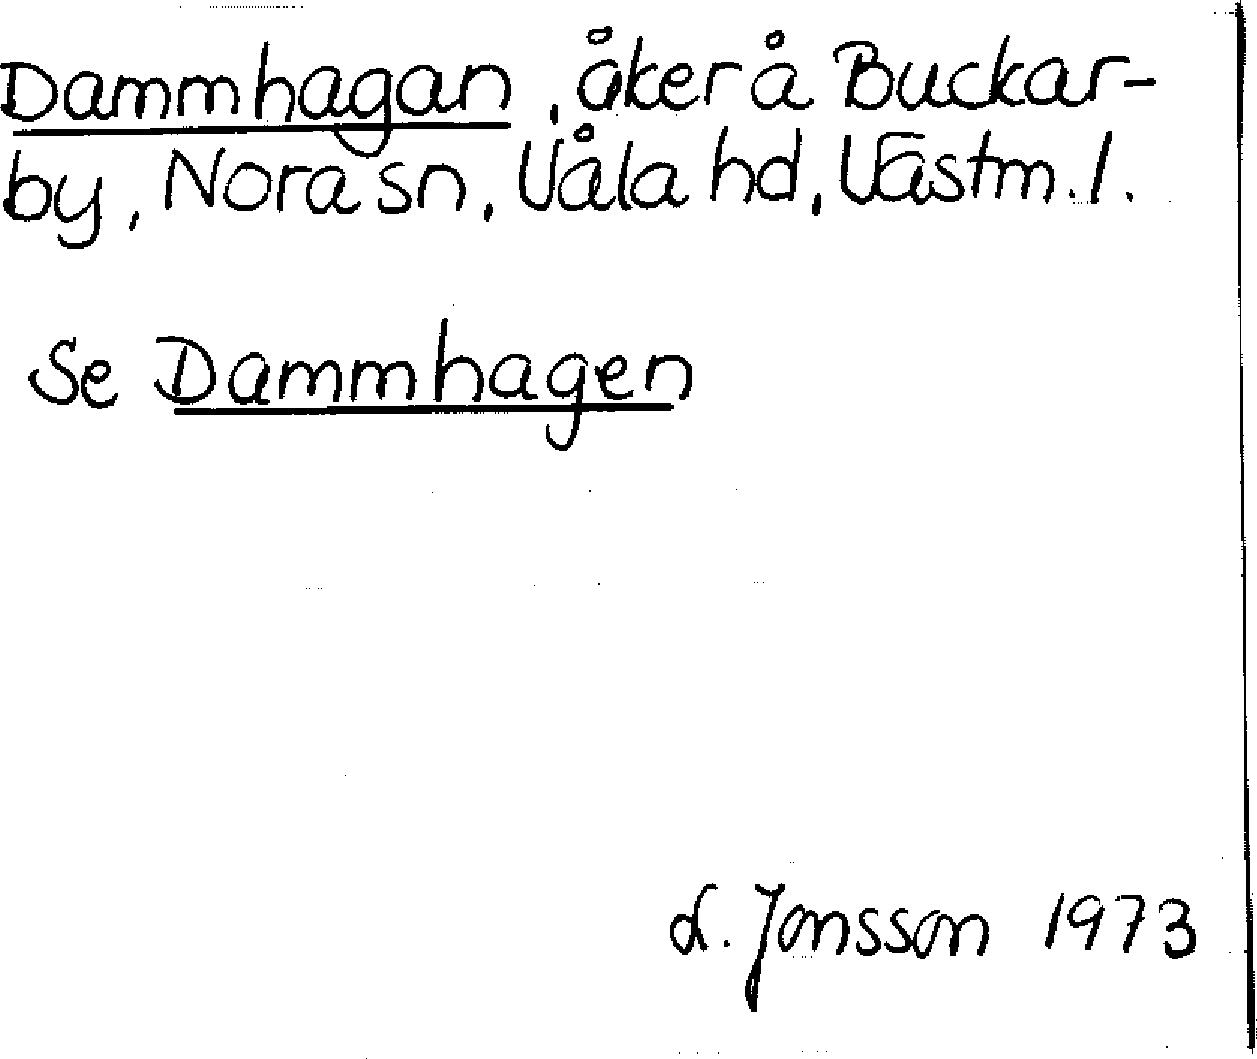 Dammhagan, åker å Buckar-
by, Nora sn, Våla hd, Västm. l.
Se Dammhagen
L. Jonsson 1973